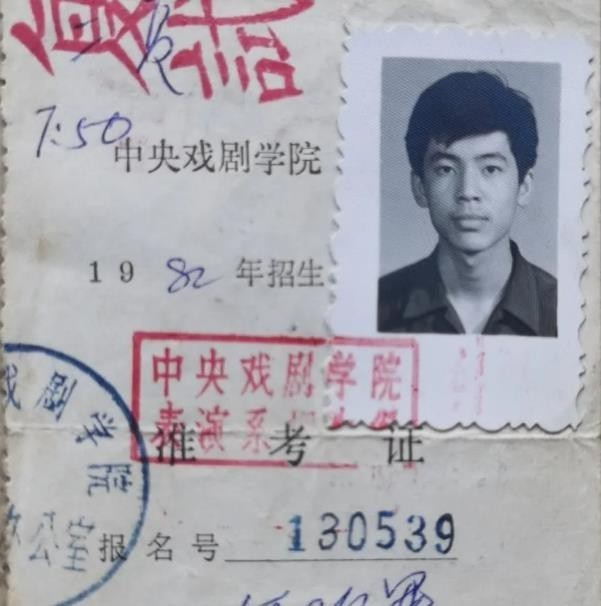 复试
7:50
中央戏剧学院
1982年招生
中央戏剧学院
表演系招生组
准考证
戏剧学院
办公室
报名号 130539